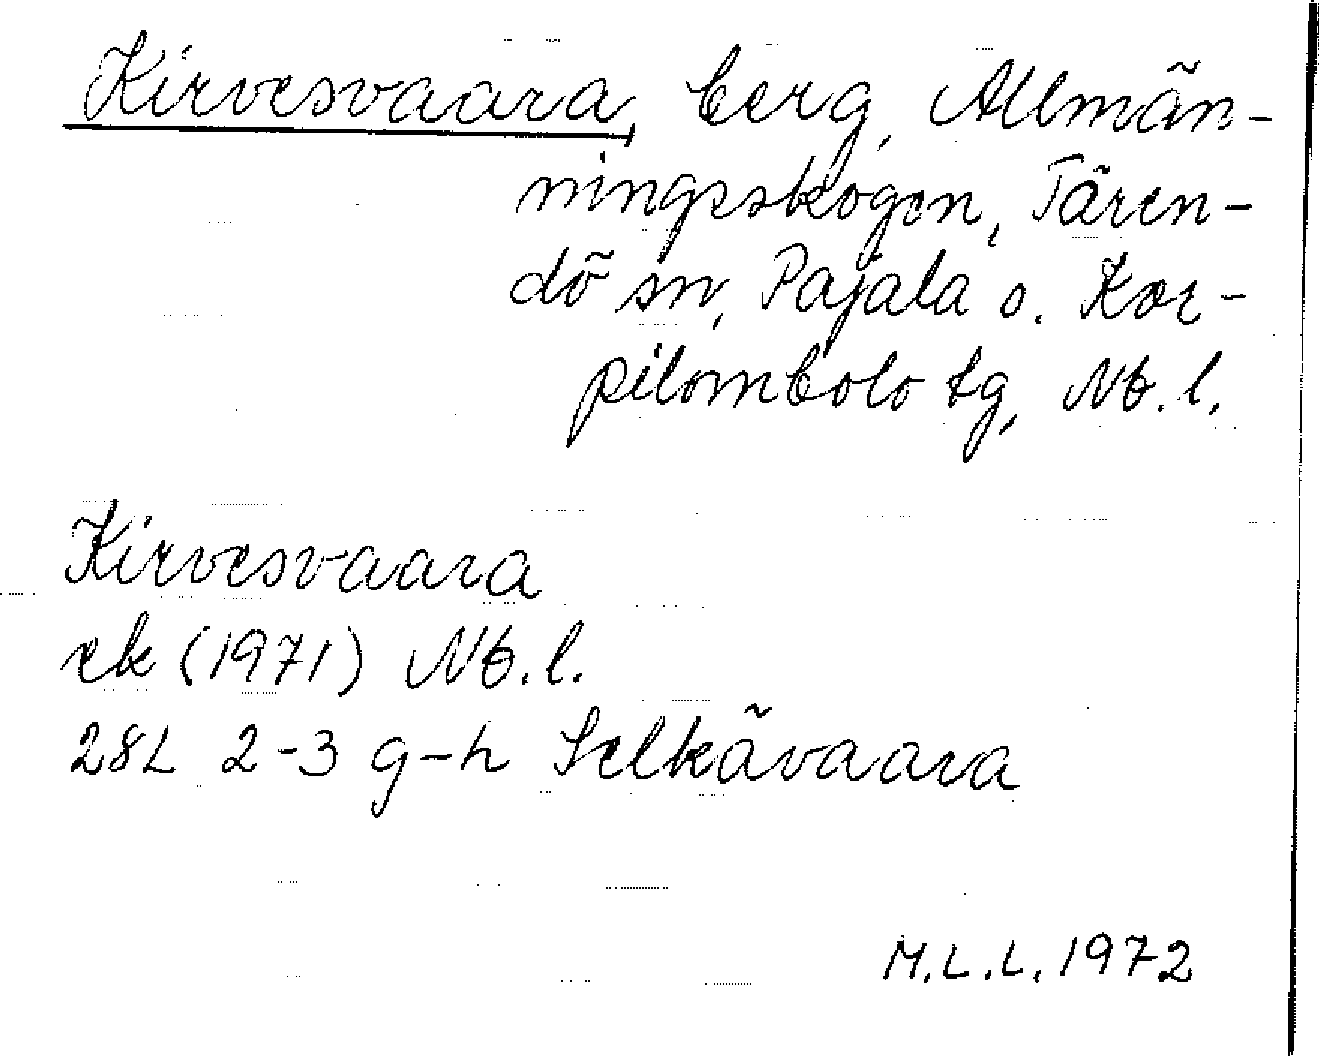 Kirvesvaara, berg, Allmän-
ningsskogen, Tären-
dö sn, Pajala o. Kor-
pilombolo tg, Nb. l.
Kirvesvaara
ek (1971) Nb. l.
28L 2-3 g-h Selkävaara
M.L.L. 1972